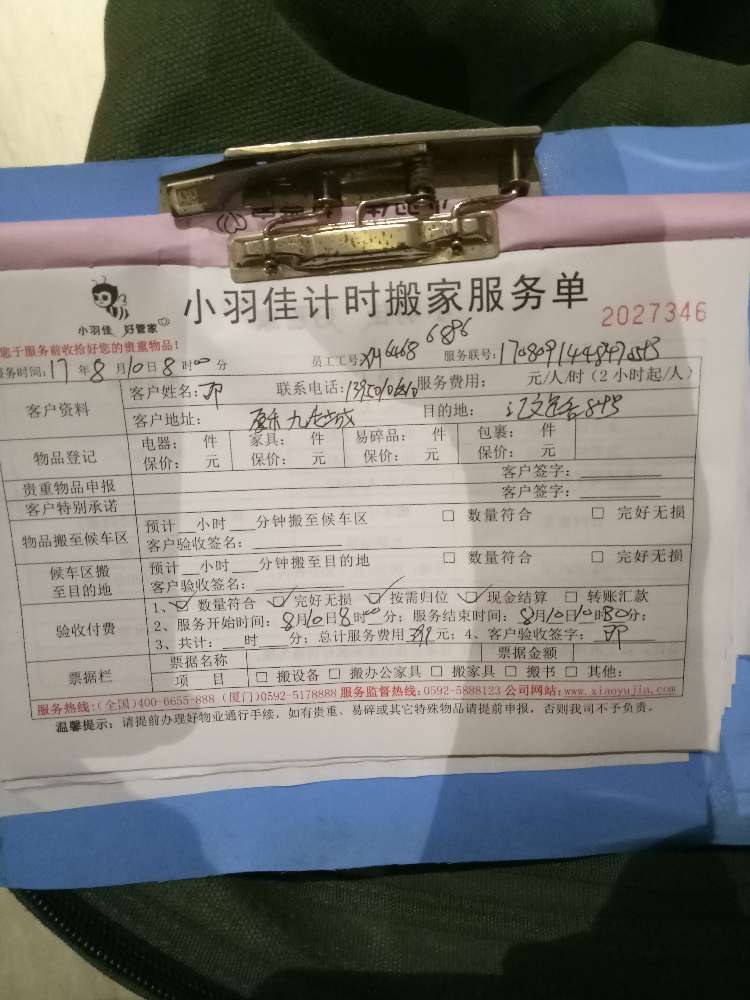 小羽佳计时搬家服务单
2027346
小羽佳 好管家
您于服务前收拾好您的贵重物品!
员工工号: 6468 6886 服务联号:
务时间: 17 年 8 月 10 日 8 时 00 分
客户资料 客户姓名: 邓 联系电话: 服务费用: 元/人/时(2小时起/人)
客户地址: 目的地:
物品登记 电器: 件 家具: 件 易碎品: 件 包裹: 件
保价: 元 保价: 元 保价: 元 保价: 元
贵重物品申报 客户签字:
客户特别承诺 客户签字:
物品搬至候车区 预计__小时__分钟搬至候车区 □ 数量符合 □ 完好无损
客户验收签名:
候车区搬至目的地 预计__小时__分钟搬至目的地 □ 数量符合 □ 完好无损
客户验收签名:
验收付费 1、☑ 数量符合 ☑ 完好无损 ☑ 按需归位 ☑ 现金结算 □ 转账汇款
2、服务开始时间: 8月10日8时00分; 服务结束时间: 8月10日10时30分;
3、共计: 时 分; 总计服务费用 元; 4、客户验收签字: 邓
票据栏 票据名称 票据金额
项 目 □ 搬设备 □ 搬办公家具 □ 搬家具 □ 搬书 □ 其他:
服务热线:(全国)400-6655-888 (厦门)0592-5178888 服务监督热线:0592-5888123 公司网站:www.xiaoyujia.com
温馨提示: 请提前办理好物业通行手续,如有贵重、易碎或其它特殊物品请提前申报,否则我司不予负责。